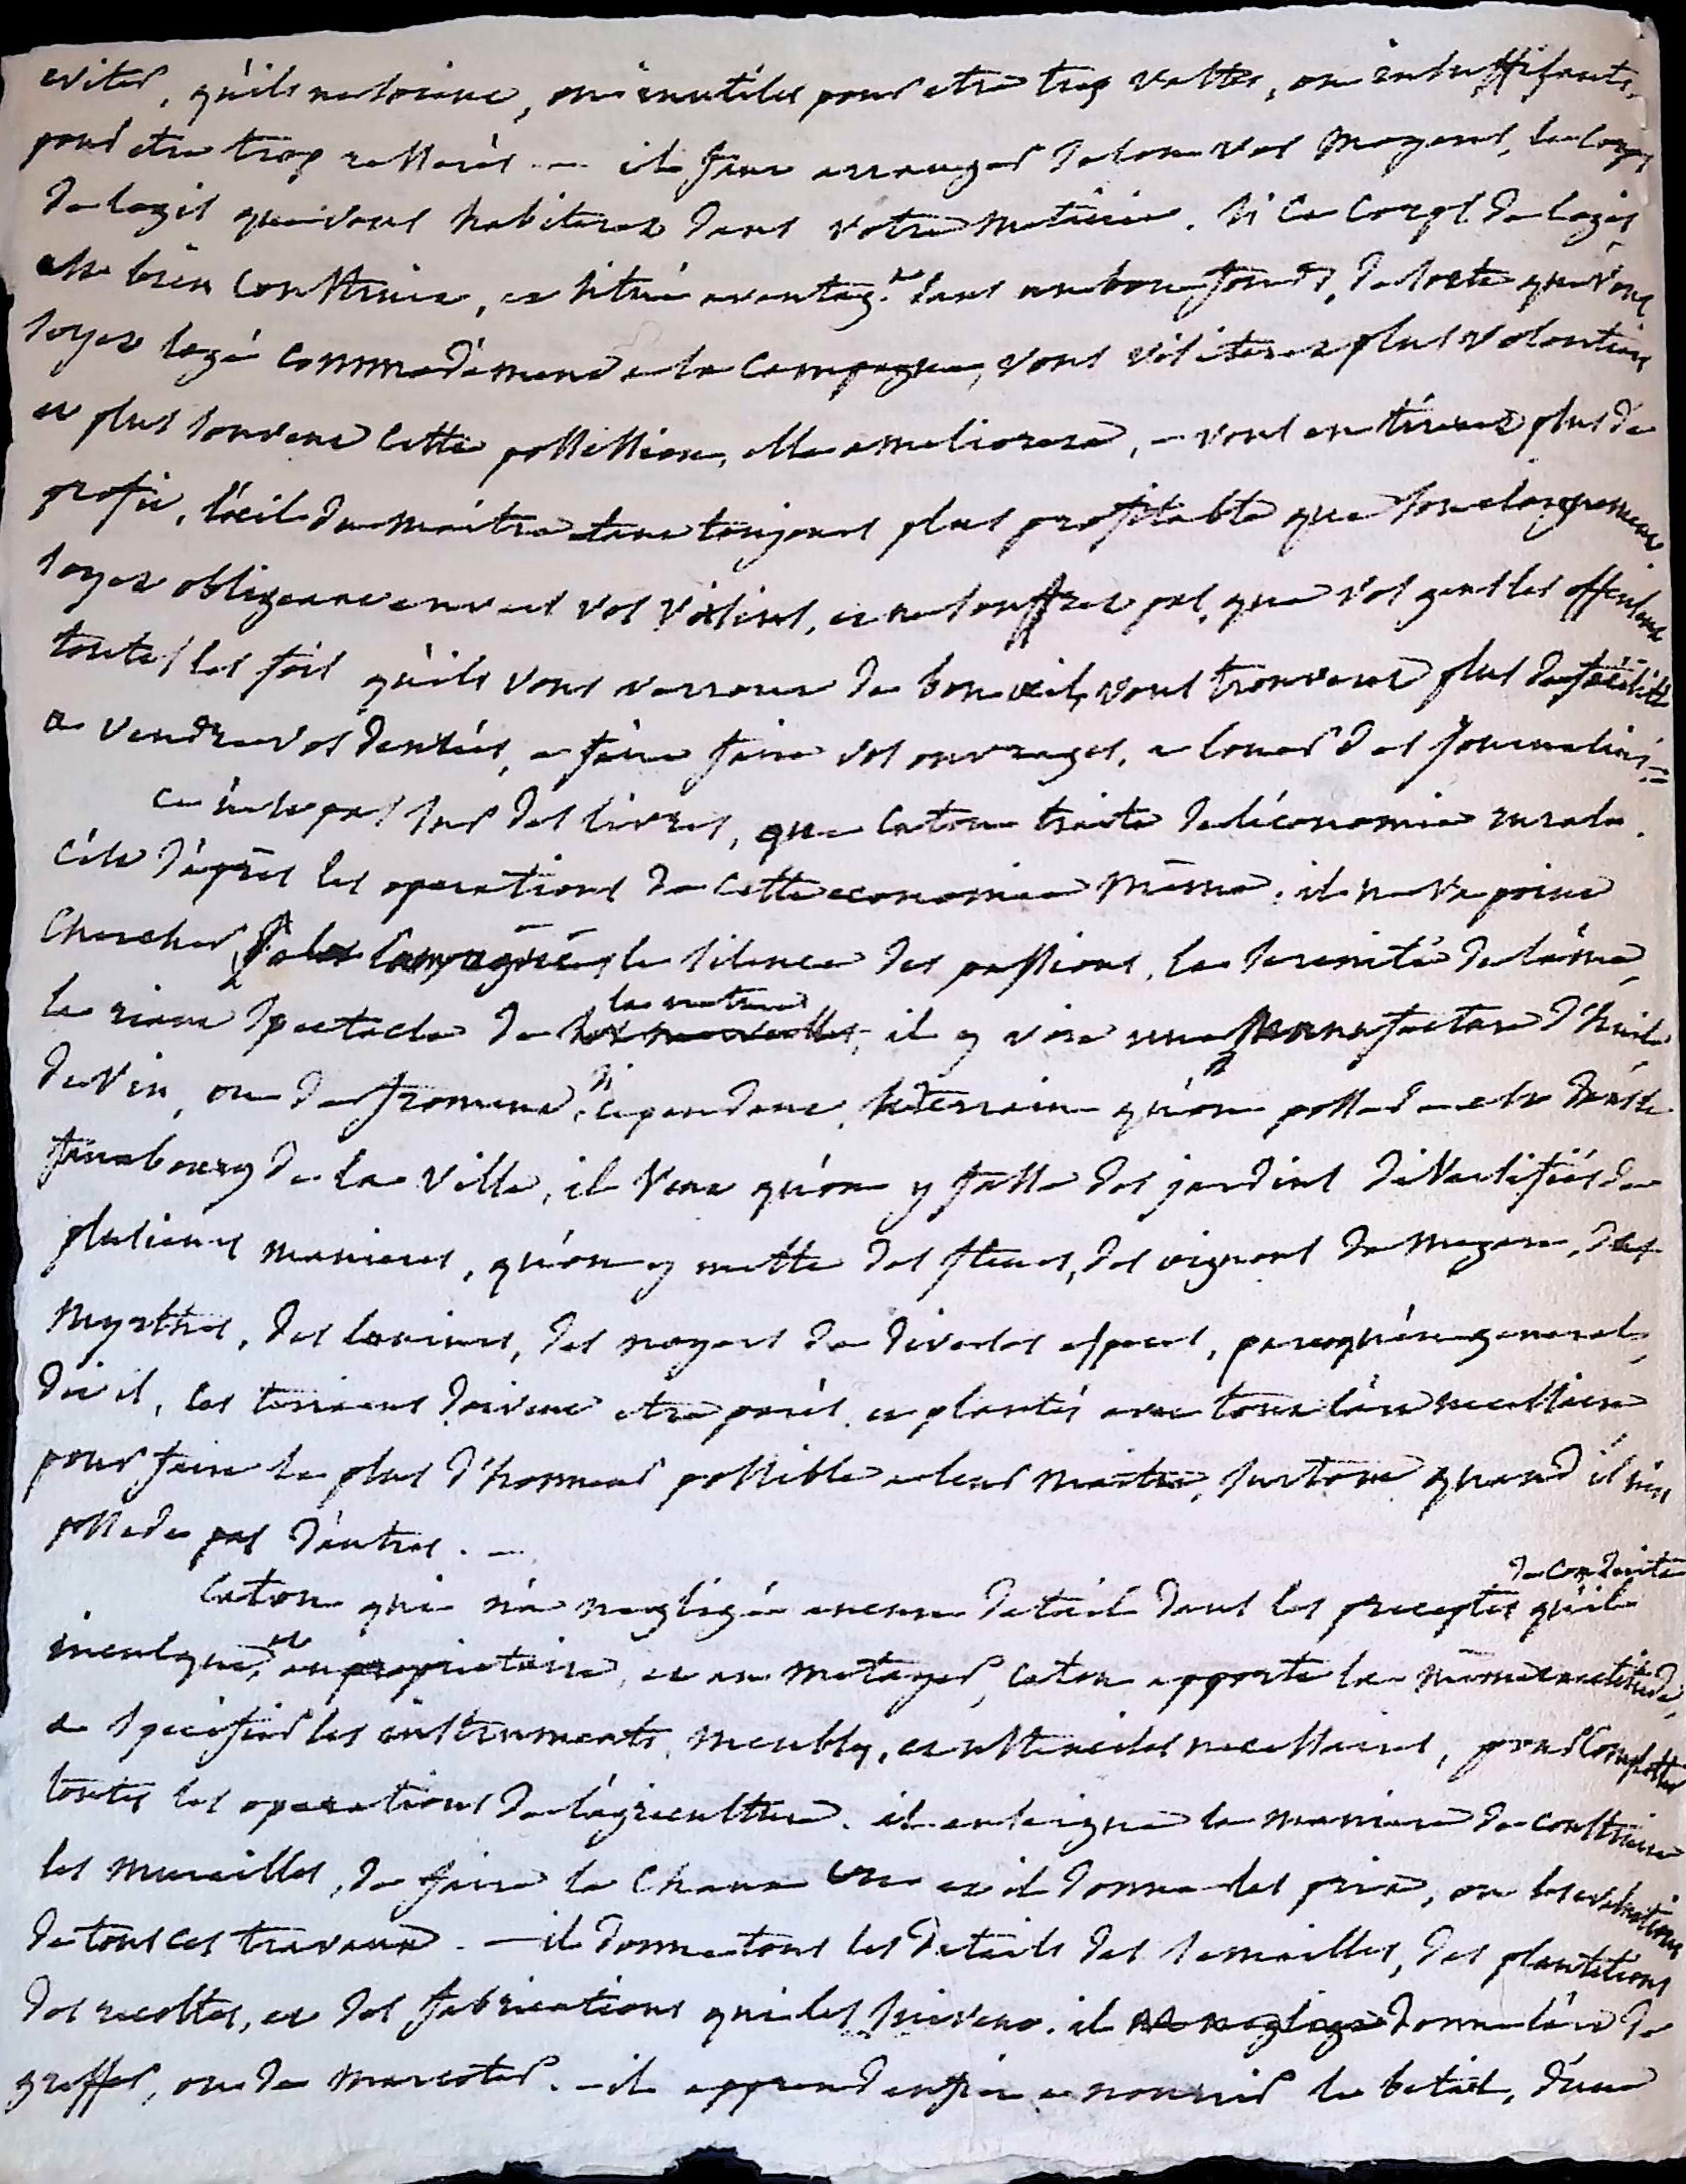 eviter, qu'ils ne soient, ou inutiles pour etre trop vastes, ou insuffisants,
pour etre trop resserés — il faut arranger selon vos moyens, le corps
de logis que vous habiterez dans votre metairie. si ce corps de logis,
est bien construit, et situé avantag.t dans un bon fonds, de sorte que vous
soyez logé commodément a la campagne, vous visiterez plus volontiers
et plus souvent cette possession, elle ameliorera, — vous en tirerez plus de
profit, l'oeil du maitre etant toujours plus profitable que son eloignement
soyez obligeant envers vos voisins, et ne souffrez pas, que vos gens les offensent
toutes les fois qu'ils vous verront de bon oeil, vous trouverez plus de facilité
a vendre vos denrées, a faire faire vos ouvrages, a louer des journaliers =
ce n'est pas sur des livres, que Caton traite de l'économie rurale.
c'est d'après les operations de cette economie même. il ne va point
chercher, le silence des passions, la serenité de l'ame,
le riant spectacle de la nature, il y voit une manufacture d'huile
de vin, ou de froment. si cependant, le terrain qu'on possede est dans le
faubourg de la ville, il veut qu'on y fasse des jardins diversifiés de
plusieurs manieres, qu'on y mette des fleurs, des oignons de Megare, des
myrthes, des lauriers, des noyers de diverses especes, parcequ'en general,
dit il, ces terreins doivent etre parés et plantés avec tout l'art necessaire
pour faire le plus d'honneur possible a leur maitre, surtout quand il n'en
possede pas d'autres. —
de conduite
Caton qui n'a negligé aucun detail dans les preceptes qu'il
inculque, et au proprietaire, et au metayer, Caton apporte la même exactitude,
a specifier les instruments, meubles, et ustenciles necessaires, pour completter
toutes les operations de l'agriculture. il enseigne la maniere de construire
les murailles, de faire la chaux et il donne les prix, ou les evaluations
de tous ces travaux. — il donne tous les details des semailles, des plantations
des recoltes, et des fabrications qui les suivent. il ne neglige donne l'art de
greffer, ou de marcoter. — il apprend enfin a nourrir le betail, d'une